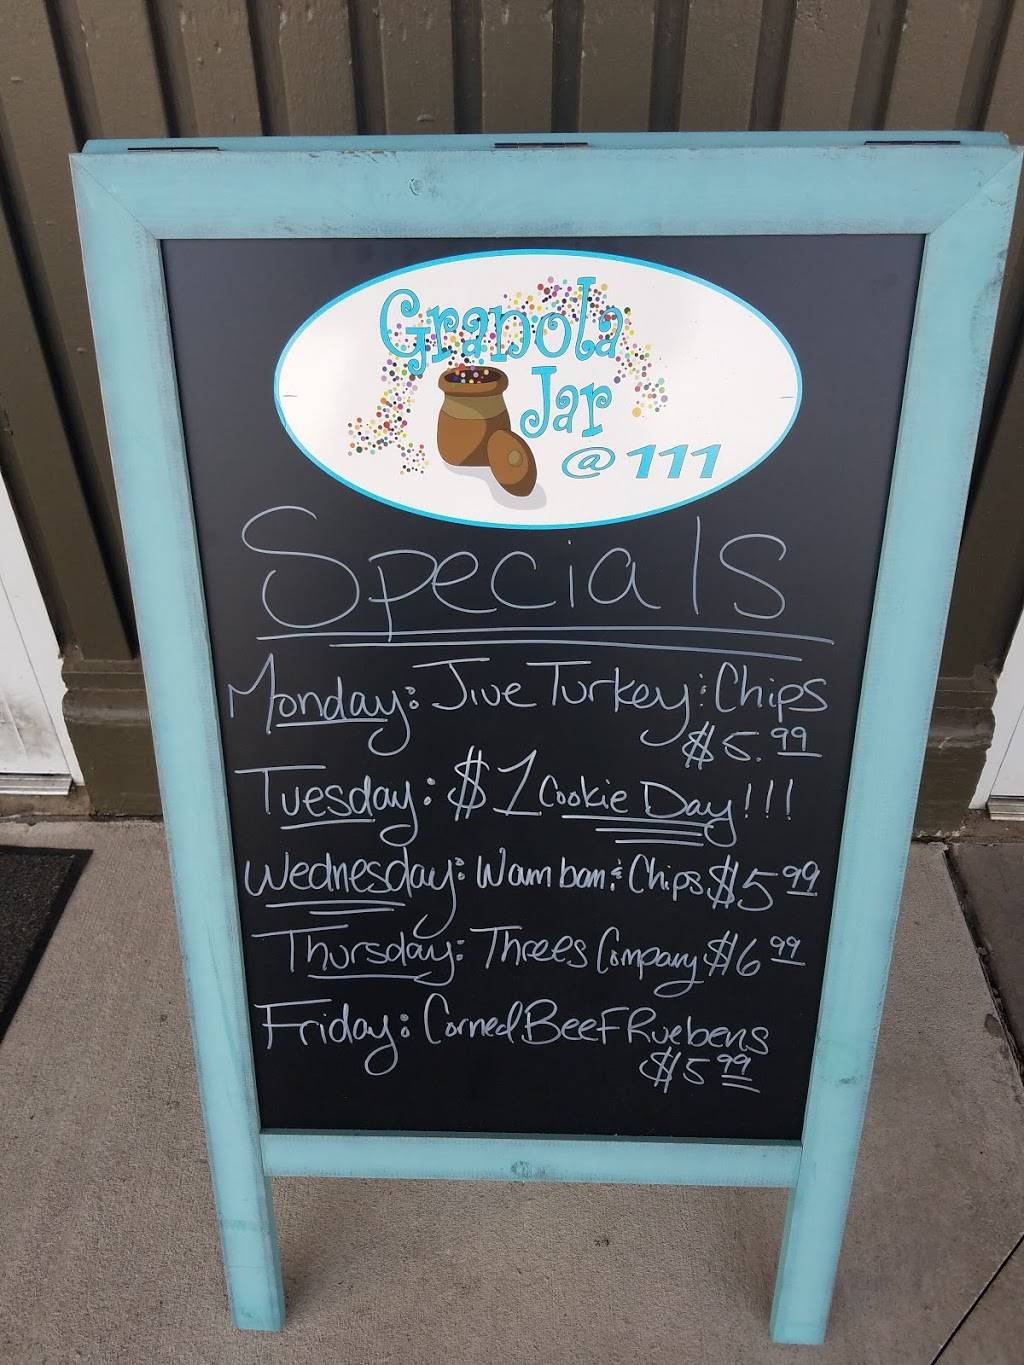 Granola
Jar
@ 111
Specials
Monday: Jive Turkey & Chips
$5.99
Tuesday: $1 Cookie Day!!!
Wednesday: Wam bam & Chips $5.99
Thursday: Threes Company $6.99
Friday: Corned Beef Ruebens
$5.99